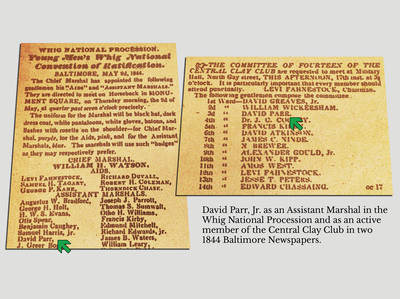 WHIG NATIONAL PROCESSION.
Young Men's Whig National
Convention of Ratification.
BALTIMORE, MAY 2d, 1844.
The Chief Marshal has appointed the following
gentlemen his "AIDS" and "ASSISTANT MARSHALS."
They are directed to meet on Horseback in MONU-
MENT SQUARE, on Thursday morning, the 2d of
May, at quarter past seven o'clock precisely.
The uniform for the Marshal will be black hat, dark
dress coat, white pantaloons, white gloves, batons, and
Sashes with rosette on the shoulder—for the Chief Mar-
shal, purple, for the Aids, pink, and for the Assistant
Marshals, blue. The marshals will use such "badges"
as they may respectively prefer.
CHIEF MARSHAL.
WILLIAM H. WATSON.
AIDS.
LEVI FAHNESTOCK, RICHARD DUVALL,
SAMUEL H. TAGART, ROBERT H. COLEMAN,
GEORGE P. KANE, THORNDICK CHASE,
ASSISTANT MARSHALS.
Augustus W. Bradford, Joseph J. Parrott,
George H. Holt, Thomas S. Sumwalt,
H. W. S. Evans, Otho H. Williams,
Otis Spear, Francis Kirby,
Benjamin Caughey, Edmund Mitchell,
Samuel Harris, jr. Richard Edwards, jr.
David Parr, James B. Waters,
J. Greer William Leary,
THE COMMITTEE OF FOURTEEN OF THE
CENTRAL CLAY CLUB are requested to meet at Musical
Hall, North Gay street, THIS AFTERNOON, 17th inst. at
o'clock. It is particularly important that every member should
attend punctually. LEVI FAHNESTOCK, Chairman.
The following gentlemen compose the committee
1st Ward—DAVID GREAVES, Jr.
2d " WILLIAM WICKERSHAM.
3d " DAVID PARR.
4th " Dr. J. J.
5th " FRANCIS
6th " DAVID ATKINSON.
7th " JAMES C. NINDE.
8th " N BREWER.
9th " ALEXANDER GOULD, Jr.
10th " JOHN W. KIPP.
11th " AMOS WEST.
12th " LEVI FAHNESTOCK.
13th " JESSE T. PETERS.
14th " EDWARD CHASSAING. oc 17
David Parr, Jr. as an Assistant Marshal in the
Whig National Procession and as an active
member of the Central Clay Club in two
1844 Baltimore Newspapers.